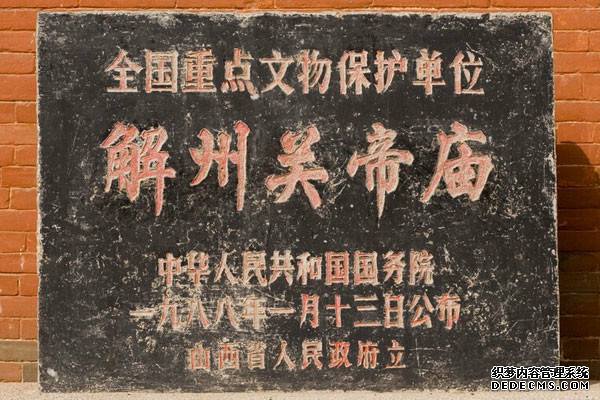 全国重点文物保护单位
解州关帝庙
中华人民共和国国务院
一九八八年一月十三日公布
山西省人民政府立
织梦内容管理系统
DEDECMS.COM